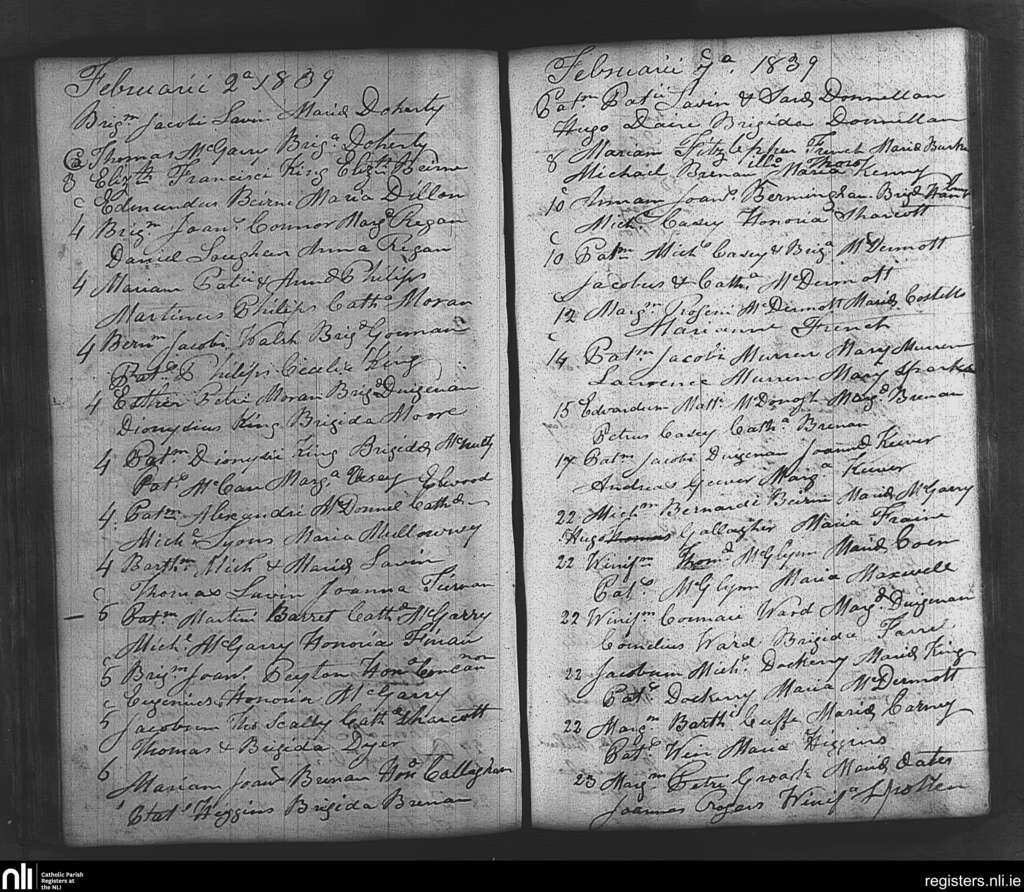 Februarii 2ª 1839
Brigm Jacobi Lavin Mariæ Doherty
Thomas McGarry Briga Doherty
8 Elizth Francisci King Elizth Beirne
Edmundus Beirne Maria Dillon
4 Brigm Joans Connor Margæ Regan
Daniel Loughan Anna Regan
4 Mariam Patii & Annæ Philips
Martinus Philips Catha Moran
4 Bernm Jacobi Walsh Brigæ Gorman
Pats Philips Cecelia King
4 Esther Petri Moran Brigæ Duigenan
Dionysius King Brigida Moore
4 Patm Dionysii King Brigidæ McNulty
Pats McCan Marga Casey
4 Patm Alexandri McDonnel Cathæ Elwood
Michs Lyons Maria Mullowney
4 Barthm Mich & Mariæ Lavin
Thomas Lavin Joanna
c
5 Patm Martini Barret Cathæ McGarry
Michs McGarry Honoria Finan
c
5 Brigm Joans Peyton Honæ
Eugenius Honoria McGarry
c
5 Jacobum Ths Scally Cathæ Sharcott
Thomas & Brigida Dyer
6 Mariam Joans Brenan Honæ Callaghan
Higgins Brigida Brenan
Februarii 7ª. 1839
Patm Patii Lavin & Saræ Donnellan
Hugo Brigida Donnellan
8 Mariam French Mariæ Burke
Michael Brenan Maria Kenny
c
10 Annam Joans Bermingham Brigæ
Michs Casey Honoria Sharcott
c
10 Patm Michs Casey & Brigæ McDermott
Jacobus & Catha McDermott
12 Margm Rogeri McDermott Mariæ Costello
Marianne French
c
14 Patm Jacobi Murren Mary Murren
Laurence Murren Mary Sparks
15 Edwardum Matti McDonogh Margæ Brenan
Petrus Casey Catha Brenan
17 Patm Jacobi Duigenan Joannæ Kewer
Andreas Geever Marga Kewer
22 Michm Bernardi Beirne Mariæ McGarry
Hugo Gallagher Maria Fraine
22 Winifm Thomæ McGlynn Mariæ Coen
Pats McGlynn Maria Maxwell
22 Winifm Ward Margæ Duigenan
Cornelius Ward Brigida Farrel
22 Jacobum Michs Dockery Mariæ King
Pats Dockerry Maria McDermott
22 Margm Barthi Cuffe Mariæ Carney
Pats Weir Maria Higgins
23 Margm Petri Groark Mariæ Oates
Joannes Rogers Winifa
nli Catholic Parish
Registers at
the NLI
registers.nli.ie